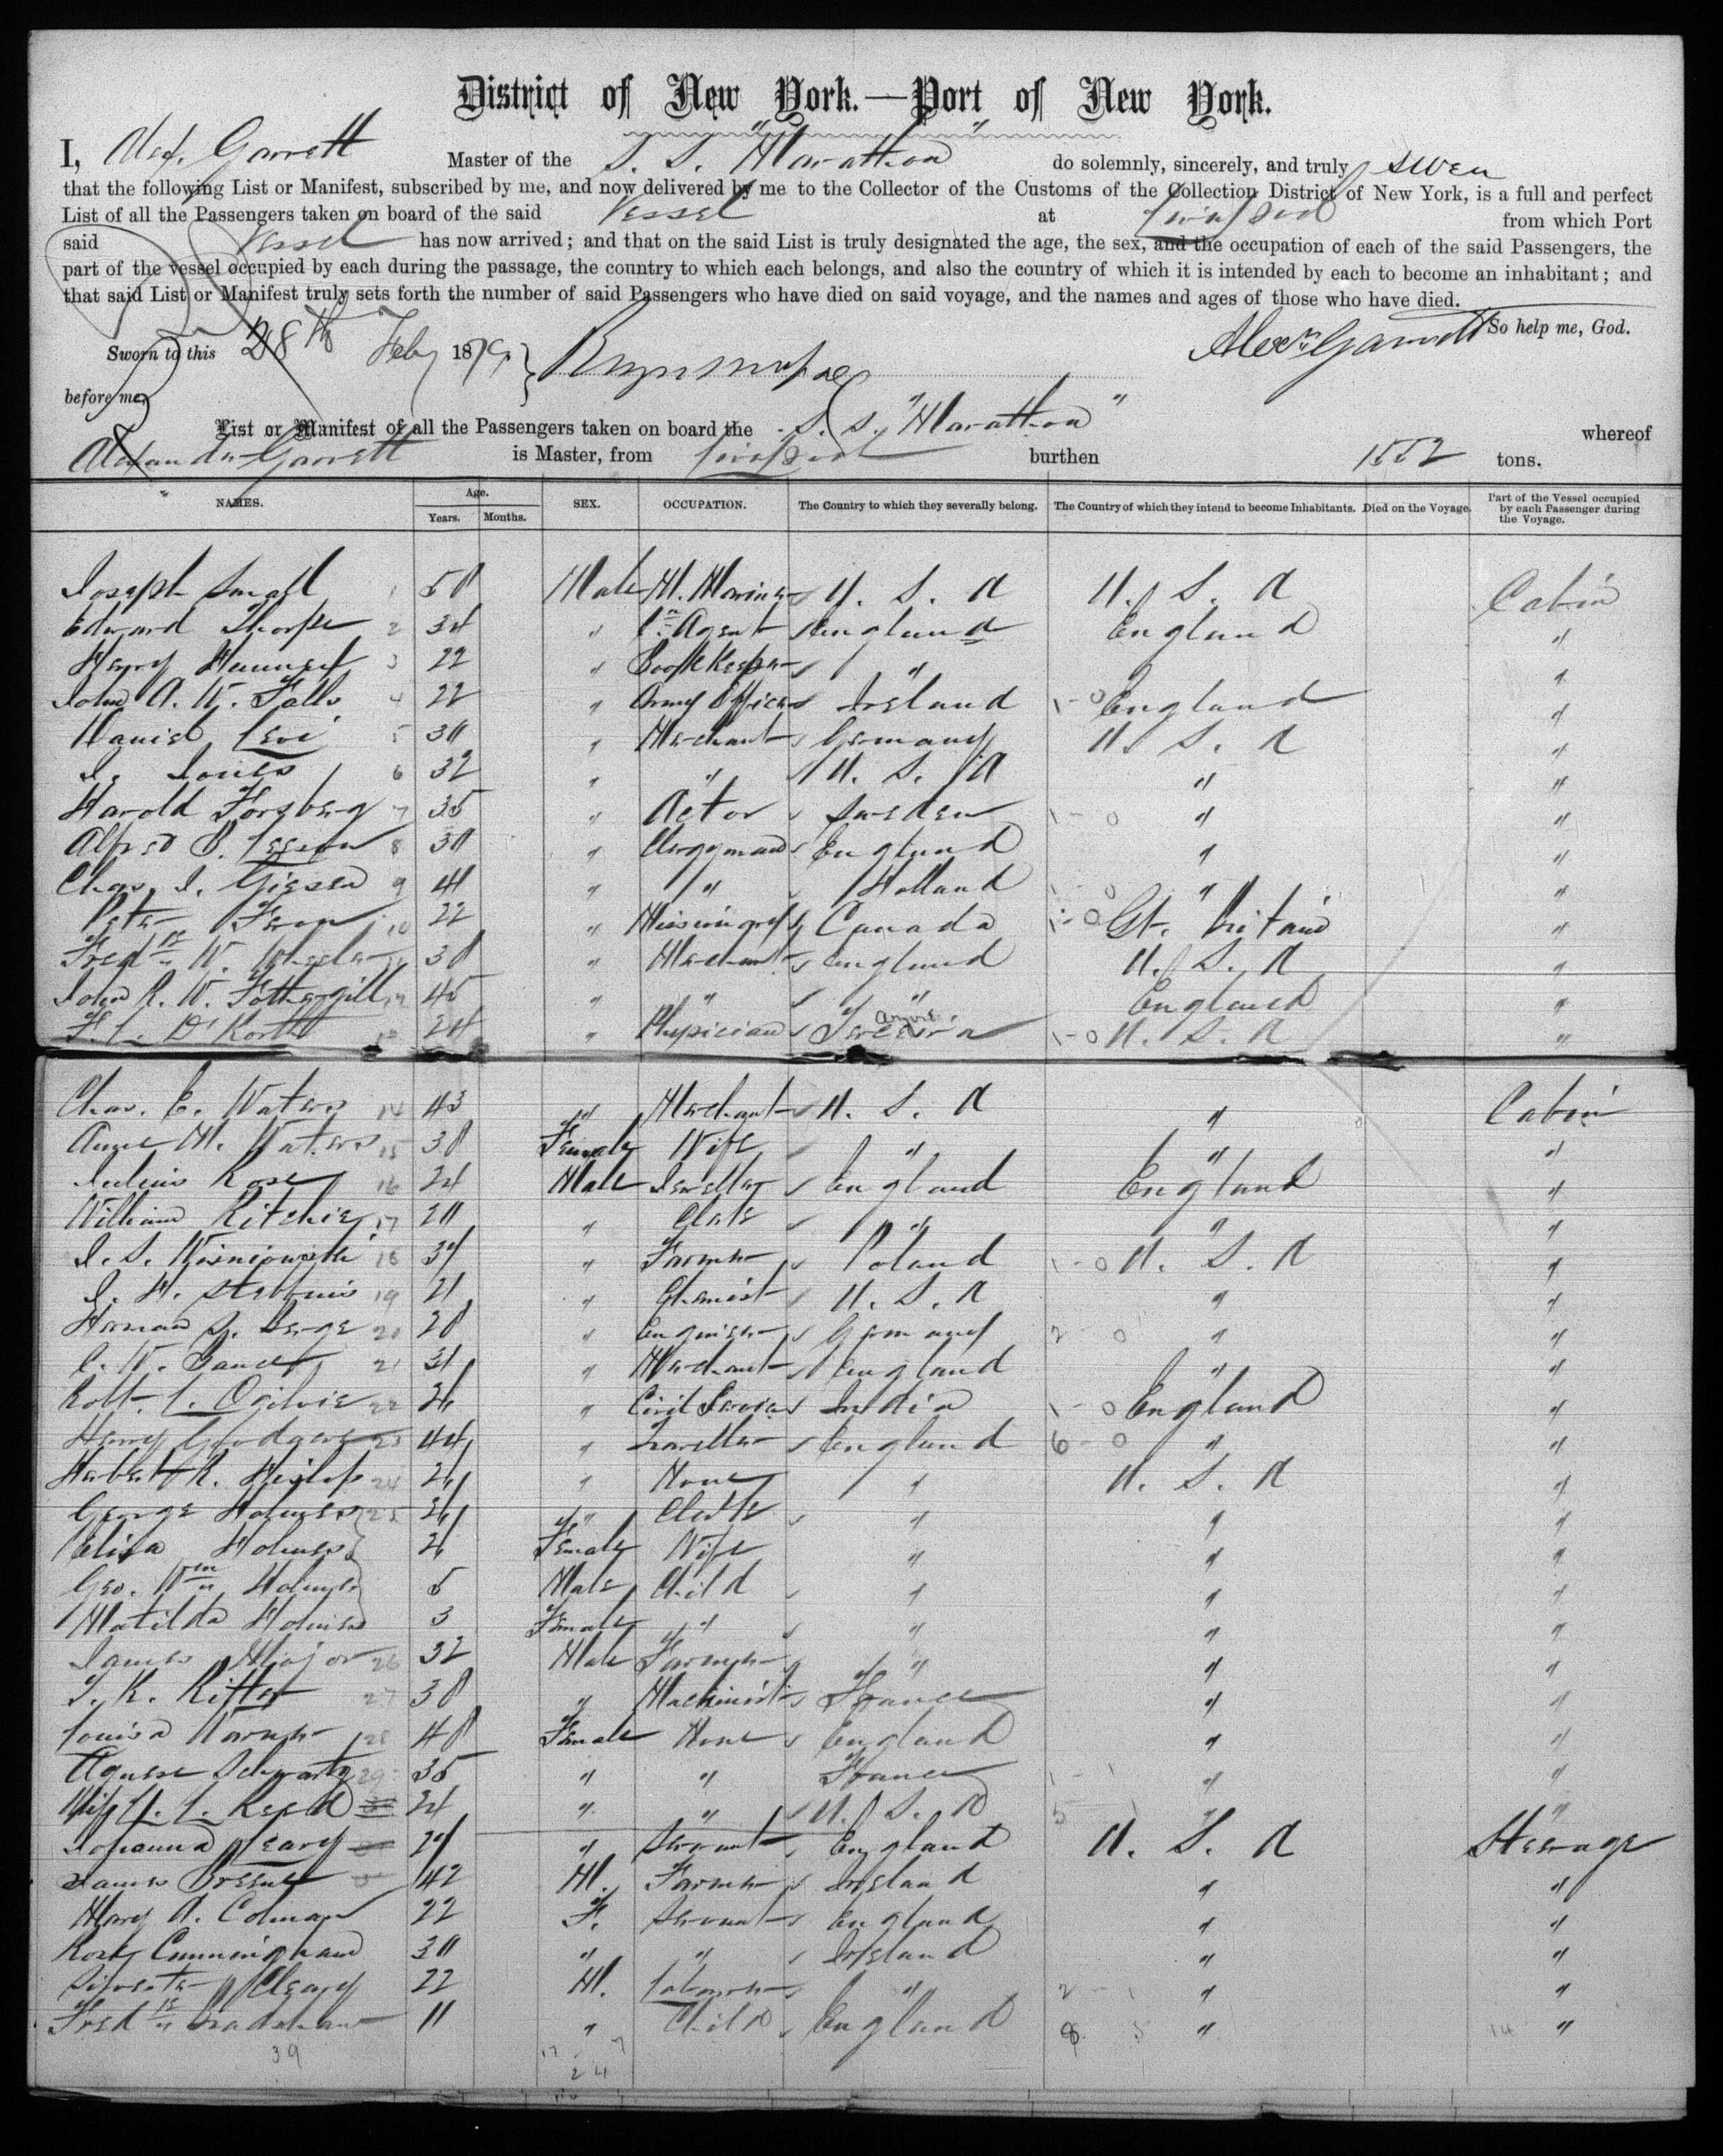 District of New York.—Port of New York.
I, Alex. Garrett Master of the S. S. "Marathon" do solemnly, sincerely, and truly swear
that the following List or Manifest, subscribed by me, and now delivered by me to the Collector of the Customs of the Collection District of New York, is a full and perfect
List of all the Passengers taken on board of the said Vessel at Liverpool from which Port
said Vessel has now arrived; and that on the said List is truly designated the age, the sex, and the occupation of each of the said Passengers, the
part of the vessel occupied by each during the passage, the country to which each belongs, and also the country of which it is intended by each to become an inhabitant; and
that said List or Manifest truly sets forth the number of said Passengers who have died on said voyage, and the names and ages of those who have died.
So help me, God.
Sworn to this 28th Feby 1879 Alexr Garrett
before me,
List or Manifest of all the Passengers taken on board the S. S. "Marathon" whereof
Alexander Garrett is Master, from Liverpool burthen 1552 tons.
NAMES. Age. Years. Months. SEX. OCCUPATION. The Country to which they severally belong. The Country of which they intend to become Inhabitants. Died on the Voyage. Part of the Vessel occupied by each Passenger during the Voyage.
Joseph Small 1 50 Male M. Mariner U. S. A U. S. A Cabin
Edward Thorpe 2 34 " Agent England England "
Harry 3 22 " Book Keeper " "
John A. W. Falls 4 22 " Army Officer Ireland 1-0 England "
Daniel Levi 5 30 " Merchant Germany U. S. A "
J. Jones 6 32 " " U. S. A " "
Harold Forsberg 7 35 " Actor Sweden 1-0 " "
Alfred B. 8 30 " Clergyman England " "
Chas. J. Giesen 9 41 " " Holland 1-0 " "
Peter 10 22 " Canada 1-0 Gt. Britain "
Fredk W. Wheeler 11 30 " Merchant England U. S. A "
John R. W. Fothergill 12 45 " " " England "
F. L. D' Korth 13 24 " Physician 1-0 U. S. A "
Chas. E. Waters 14 43 " Merchant U. S. A " Cabin
Annie M. Waters 15 30 Female Wife " " "
Julius Rose 16 24 Male Jeweller England England "
William Ritchie 17 20 " Clerk " " "
J. S. Wisniowski 18 37 " Farmer Poland 1-0 U. S. A "
J. H. Stebbins 19 21 " Chemist U. S. A " "
Herman 20 28 " Engineer Germany 2 0 " "
C. W. 21 31 " Merchant England " "
Robt. L. Ogilvie 22 26 " Civil Service India 1-0 England "
Harry 23 44 " Traveller England 6-0 " "
Herbert R. Heslop 24 21 " None " U. S. A "
George Holmes 25 26 " Clerk " " "
Eliza Holmes 26 Female Wife " " "
Geo. Wm Holmes 5 Male Child " " "
Matilda Holmes 3 Female " " " "
James Major 26 32 Male Farmer " " "
J. K. Ritter 27 30 " Machinist France " "
Louisa Warner 28 40 Female None England " "
Agnese Schwartz 29 35 " " France 1-1 " "
Miss L. L. Reed 24 " " U. S. A 5 " "
Johanna Leary 27 " Servant England U. S. A Steerage
James Bresnee 42 M. Farmer Ireland " "
Mary A. Colman 22 F. Servant England " "
Rose Cunningham 30 " " Ireland " "
Silvester Cleary 22 M. Labourer " 2-1 " "
Fredk Bradshaw 11 " Child England 8 5 " 14 "
39 17 7
24